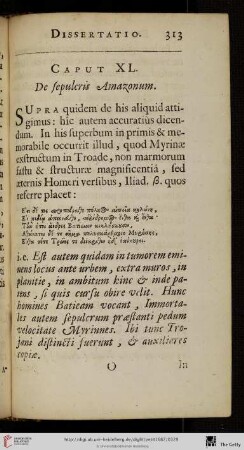 DISSERTATIO. 313
CAPUT XL.
De sepulcris Amazonum.
SUPRA quidem de his aliquid atti-
gimus: hic autem accuratius dicen-
dum. In his superbum in primis & me-
morabile occurrit illud, quod Myrinæ
exstructum in Troade, non marmorum
fastu & structuræ magnificentiâ, sed
æternis Homeri versibus, Iliad. β. quos
referre placet:
i. e. Est autem quidam in tumorem emi-
nens locus ante urbem, extra muros, in
planitie, in ambitum hinc & inde pa-
tens, si quis cursu obire velit. Hunc
homines Batieam vocant, Immorta-
les autem sepulcrum præstanti pedum
velocitate Myrinnes. Ibi tunc Tro-
jani distincti fuerunt, & auxiliares
copiæ.
O In
http://digi.ub.uni-heidelberg.de/diglit/petit1687/0379
The Getty